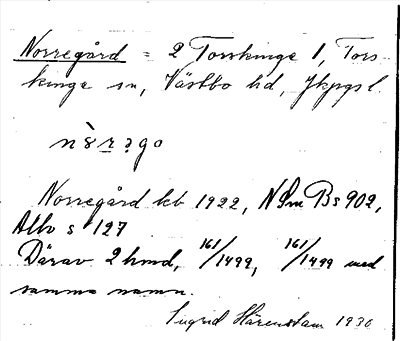 Norregård = 2 Torskinge 1, Tors
kinge sn, Västbo hd, Jkpgs l.
Norregård kb 1922, NSm Bs 902,
Allo s 127
Därav 2 hmd, 161/1499, 161/1499 med
samma namn.
Ingrid Härenstam 1930